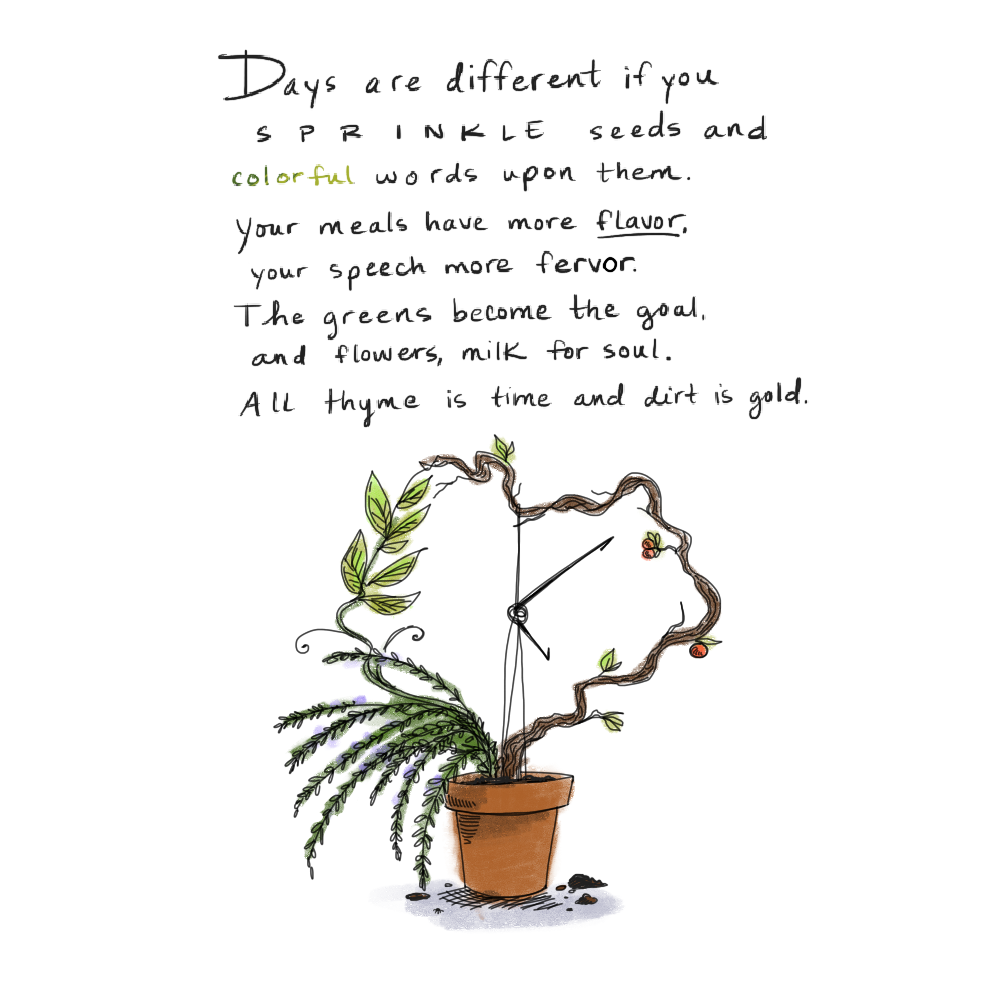 Days are different if you
SPRINKLE seeds and
colorful words upon them.
Your meals have more flavor,
your speech more fervor.
The greens become the goal,
and flowers, milk for soul.
All thyme is time and dirt is gold.